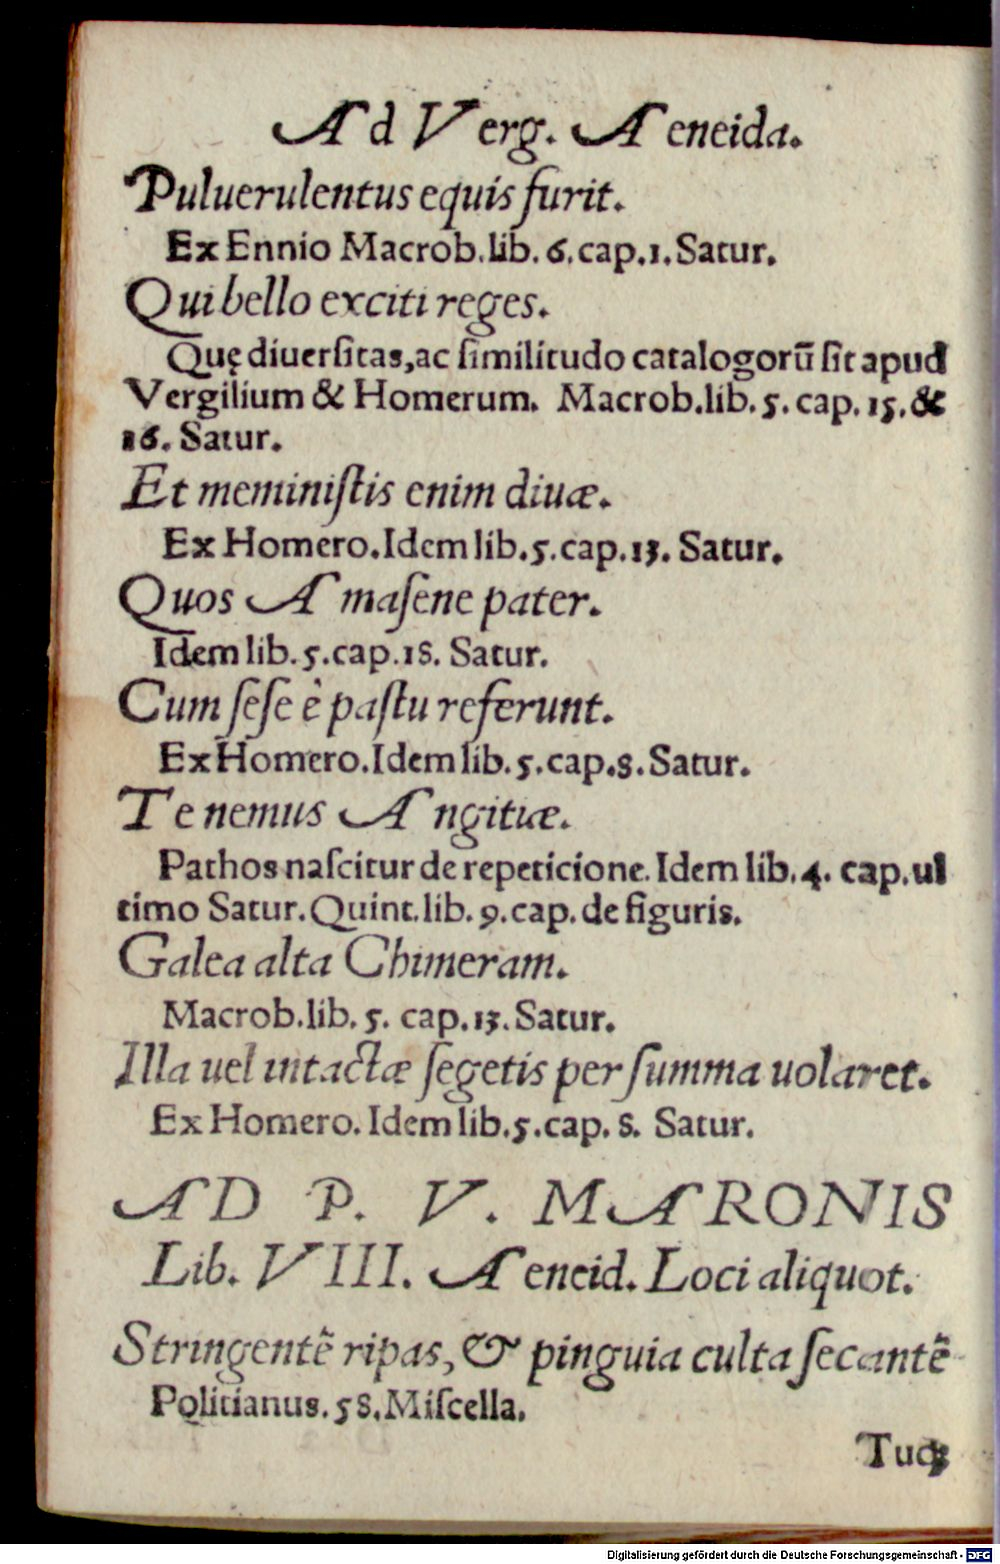 Ad Verg. Aeneida.
Puluerulentus equis furit.
Ex Ennio Macrob.lib. 6.cap.1.Satur.
Qui bello exciti reges.
Quę diuersitas,ac similitudo catalogorū sit apud
Vergilium & Homerum. Macrob.lib. 5. cap. 15. &
16. Satur.
Et meministis enim diuæ.
Ex Homero.Idem lib.5.cap.13. Satur.
Quos Amasene pater.
Idem lib. 5.cap.18. Satur.
Cum sese è pastu referunt.
Ex Homero.Idem lib. 5.cap.8. Satur.
Te nemus Angitiæ.
Pathos nascitur de repeticione. Idem lib.4. cap.ul
timo Satur. Quint.lib. 9.cap. de figuris.
Galea alta Chimeram.
Macrob.lib. 5. cap.13.Satur.
Illa uel intactæ segetis per summa uolaret.
Ex Homero. Idem lib.5.cap. 8. Satur.
AD P. V. MARONIS
Lib. VIII. Aeneid. Loci aliquot.
Stringentē ripas, & pinguia culta secantē
Politianus. 58. Miscella.
Tuqꝫ
Digitalisierung gefördert durch die Deutsche Forschungsgemeinschaft - DFG